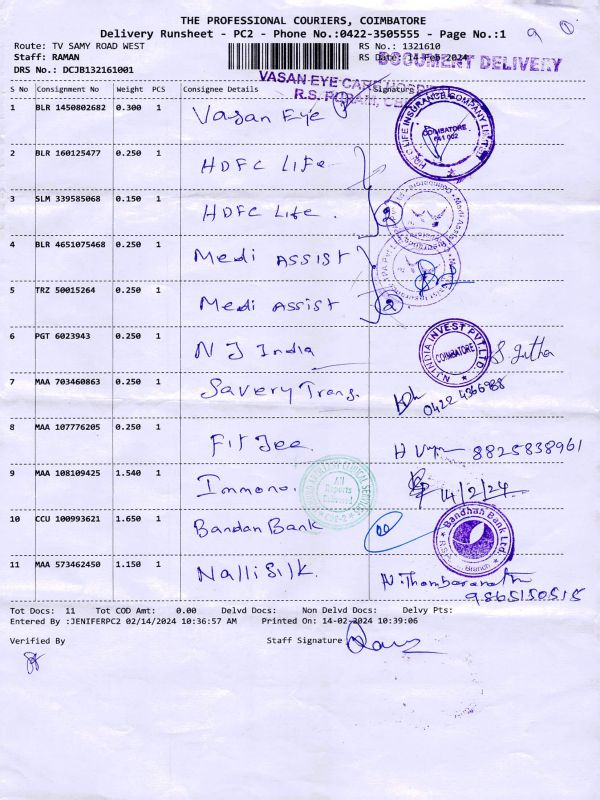 THE PROFESSIONAL COURIERS, COIMBATORE
Delivery Runsheet - PC2 - Phone No.:0422-3505555 - Page No.:1
9 1
Route: TV SAMY ROAD WEST RS No.: 1321610
Staff: RAMAN RS Date: 14-Feb-2024
DOCUMENT DELIVERY
DRS No.: DCJB132161001
VASAN EYE CARE
R.S. PURAM, CBE
S No Consignment No Weight PCS Consignee Details Signature
1 BLR 1450802682 0.300 1 Vasan Eye 1
LIFE INSURANCE COMPANY LIMITED
COIMBATORE
641 002
2 BLR 160125477 0.250 1 HDFC Life
3 SLM 339585068 0.150 1 HDFC Life. 2
4 BLR 4651075468 0.250 1 Medi Assist
5 TRZ 50015264 0.250 1 Medi Assist 2
6 PGT 6023943 0.250 1 N J India
NJ INDIA INVEST PVT. LTD.
COIMBATORE
7 MAA 703460863 0.250 1 Savery Trans. 0422 4366988
8 MAA 107776205 0.250 1 FitJee. 8825838961
9 MAA 108109425 1.540 1 Immono. 14/2/24
10 CCU 100993621 1.650 1 Bandan Bank
Bandhan Bank Ltd.
Branch
11 MAA 573462450 1.150 1 Nalli Silk.
9865150515
Tot Docs: 11 Tot COD Amt: 0.00 Delvd Docs: Non Delvd Docs: Delvy Pts:
Entered By :JENIFERPC2 02/14/2024 10:36:57 AM Printed On: 14-02-2024 10:39:06
Verified By Staff Signature